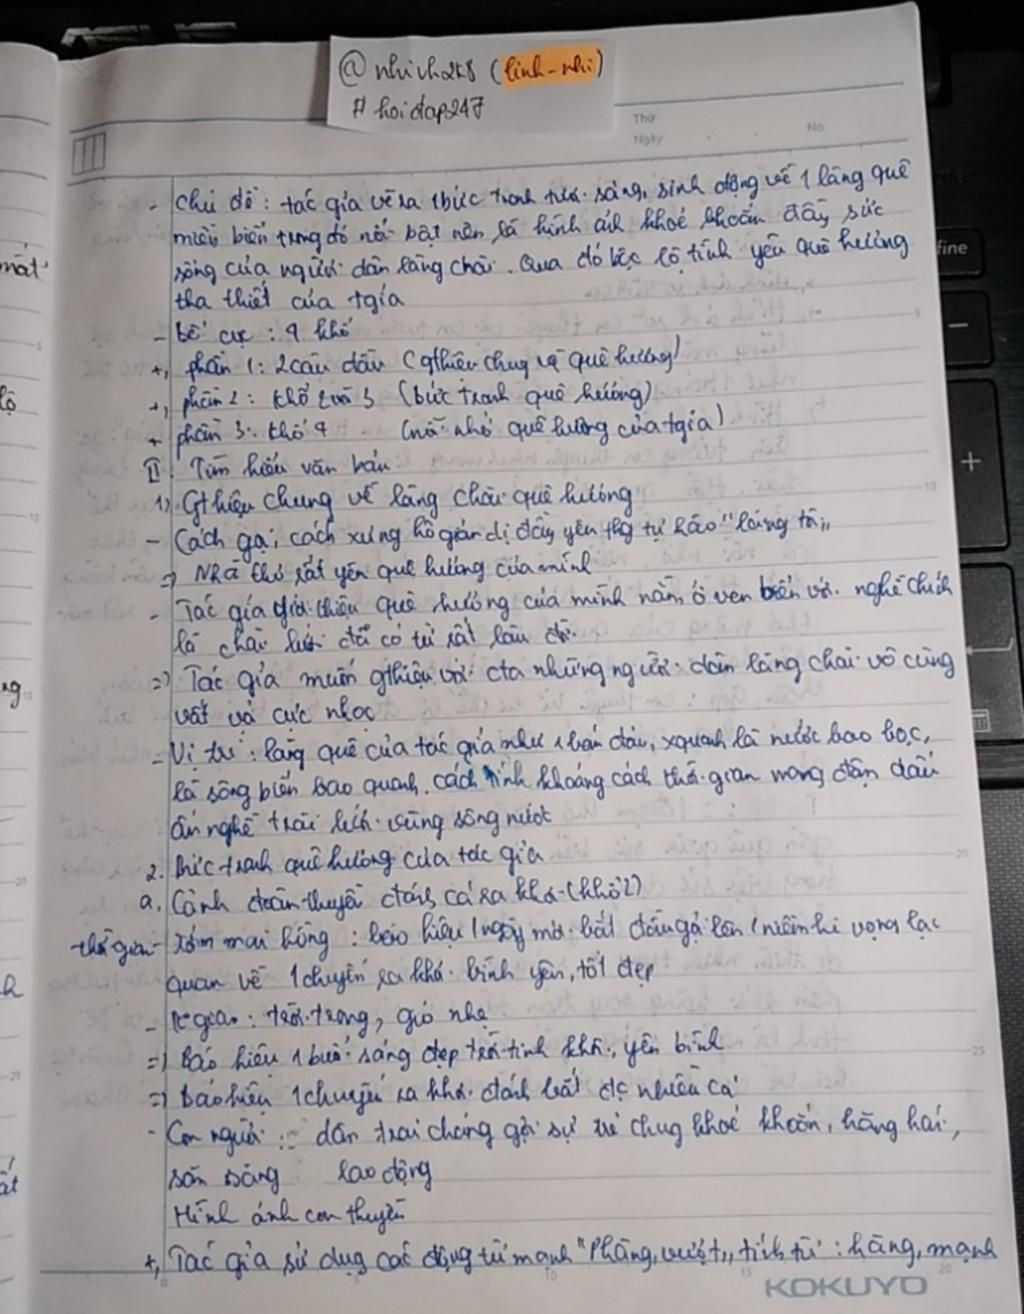 @ nhivh2k8 (linh-nhi)
# hoidap247
Thứ
Ngày
No.
- Chủ đề: tác giả vẽ ra 1 bức tranh tươi sáng, sinh động về 1 làng quê
miền biển trong đó nổi bật nên là hình ảnh khoẻ khoắn đầy sức
sống của người dân làng chài. Qua đó bộc lộ tình yêu quê hương
tha thiết của tgiả
- bố cục: 4 khổ
+, phần 1: 2 câu đầu (gthiệu chug về quê hương)
+, phần 2: khổ 2 và 3 (bức tranh quê hương)
+ phần 3: khổ 4 (nỗi nhớ quê hương của tgiả)
II. Tìm hiểu văn bản
1). Gthiệu chung về làng chài quê hương
- Cách gọi, cách xưng hô giản dị đầy yêu thg tự hào "làng tôi"
=> Nhà thơ rất yêu quê hương của mình
- Tác giả giới thiệu quê hương của mình nằm ở ven biển với nghề chính
là chài lưới đã có từ rất lâu đời.
=> Tác giả muốn gthiệu với cta những người dân làng chài vô cùng
vất vả cực nhọc
- Vị trí: làng quê của tác giả như 1 bán đảo, xquanh là nước bao bọc,
là sông biển bao quanh. cách tính khoảng cách thời gian mang đậm dấu
ấn nghề trải lích vùng sông nước
2. Bức tranh quê hương của tác giả
a. Cảnh đoàn thuyền đánh cá ra khơi (khổ 2)
thời gian - sớm mai hồng: báo hiệu 1 ngày mới bắt đầu gợi lên 1 niềm hi vọng lạc
quan về 1 chuyến ra khơi bình yên, tốt đẹp
- k gian: trời trong, gió nhẹ
=> Báo hiệu 1 buổi sáng đẹp trời tinh khôi, yên bình
=> báo hiệu 1 chuyến ra khơi đánh bắt đc nhiều cá
- Con người: dân trai tráng gợi sự trẻ chug khoẻ khoắn, hăng hái,
sẵn sàng lao động
Hình ảnh con thuyền
+, Tác giả sử dụg các động từ mạnh "Phăng, vượt", tính từ: hăng, mạnh
KOKUYO
fine